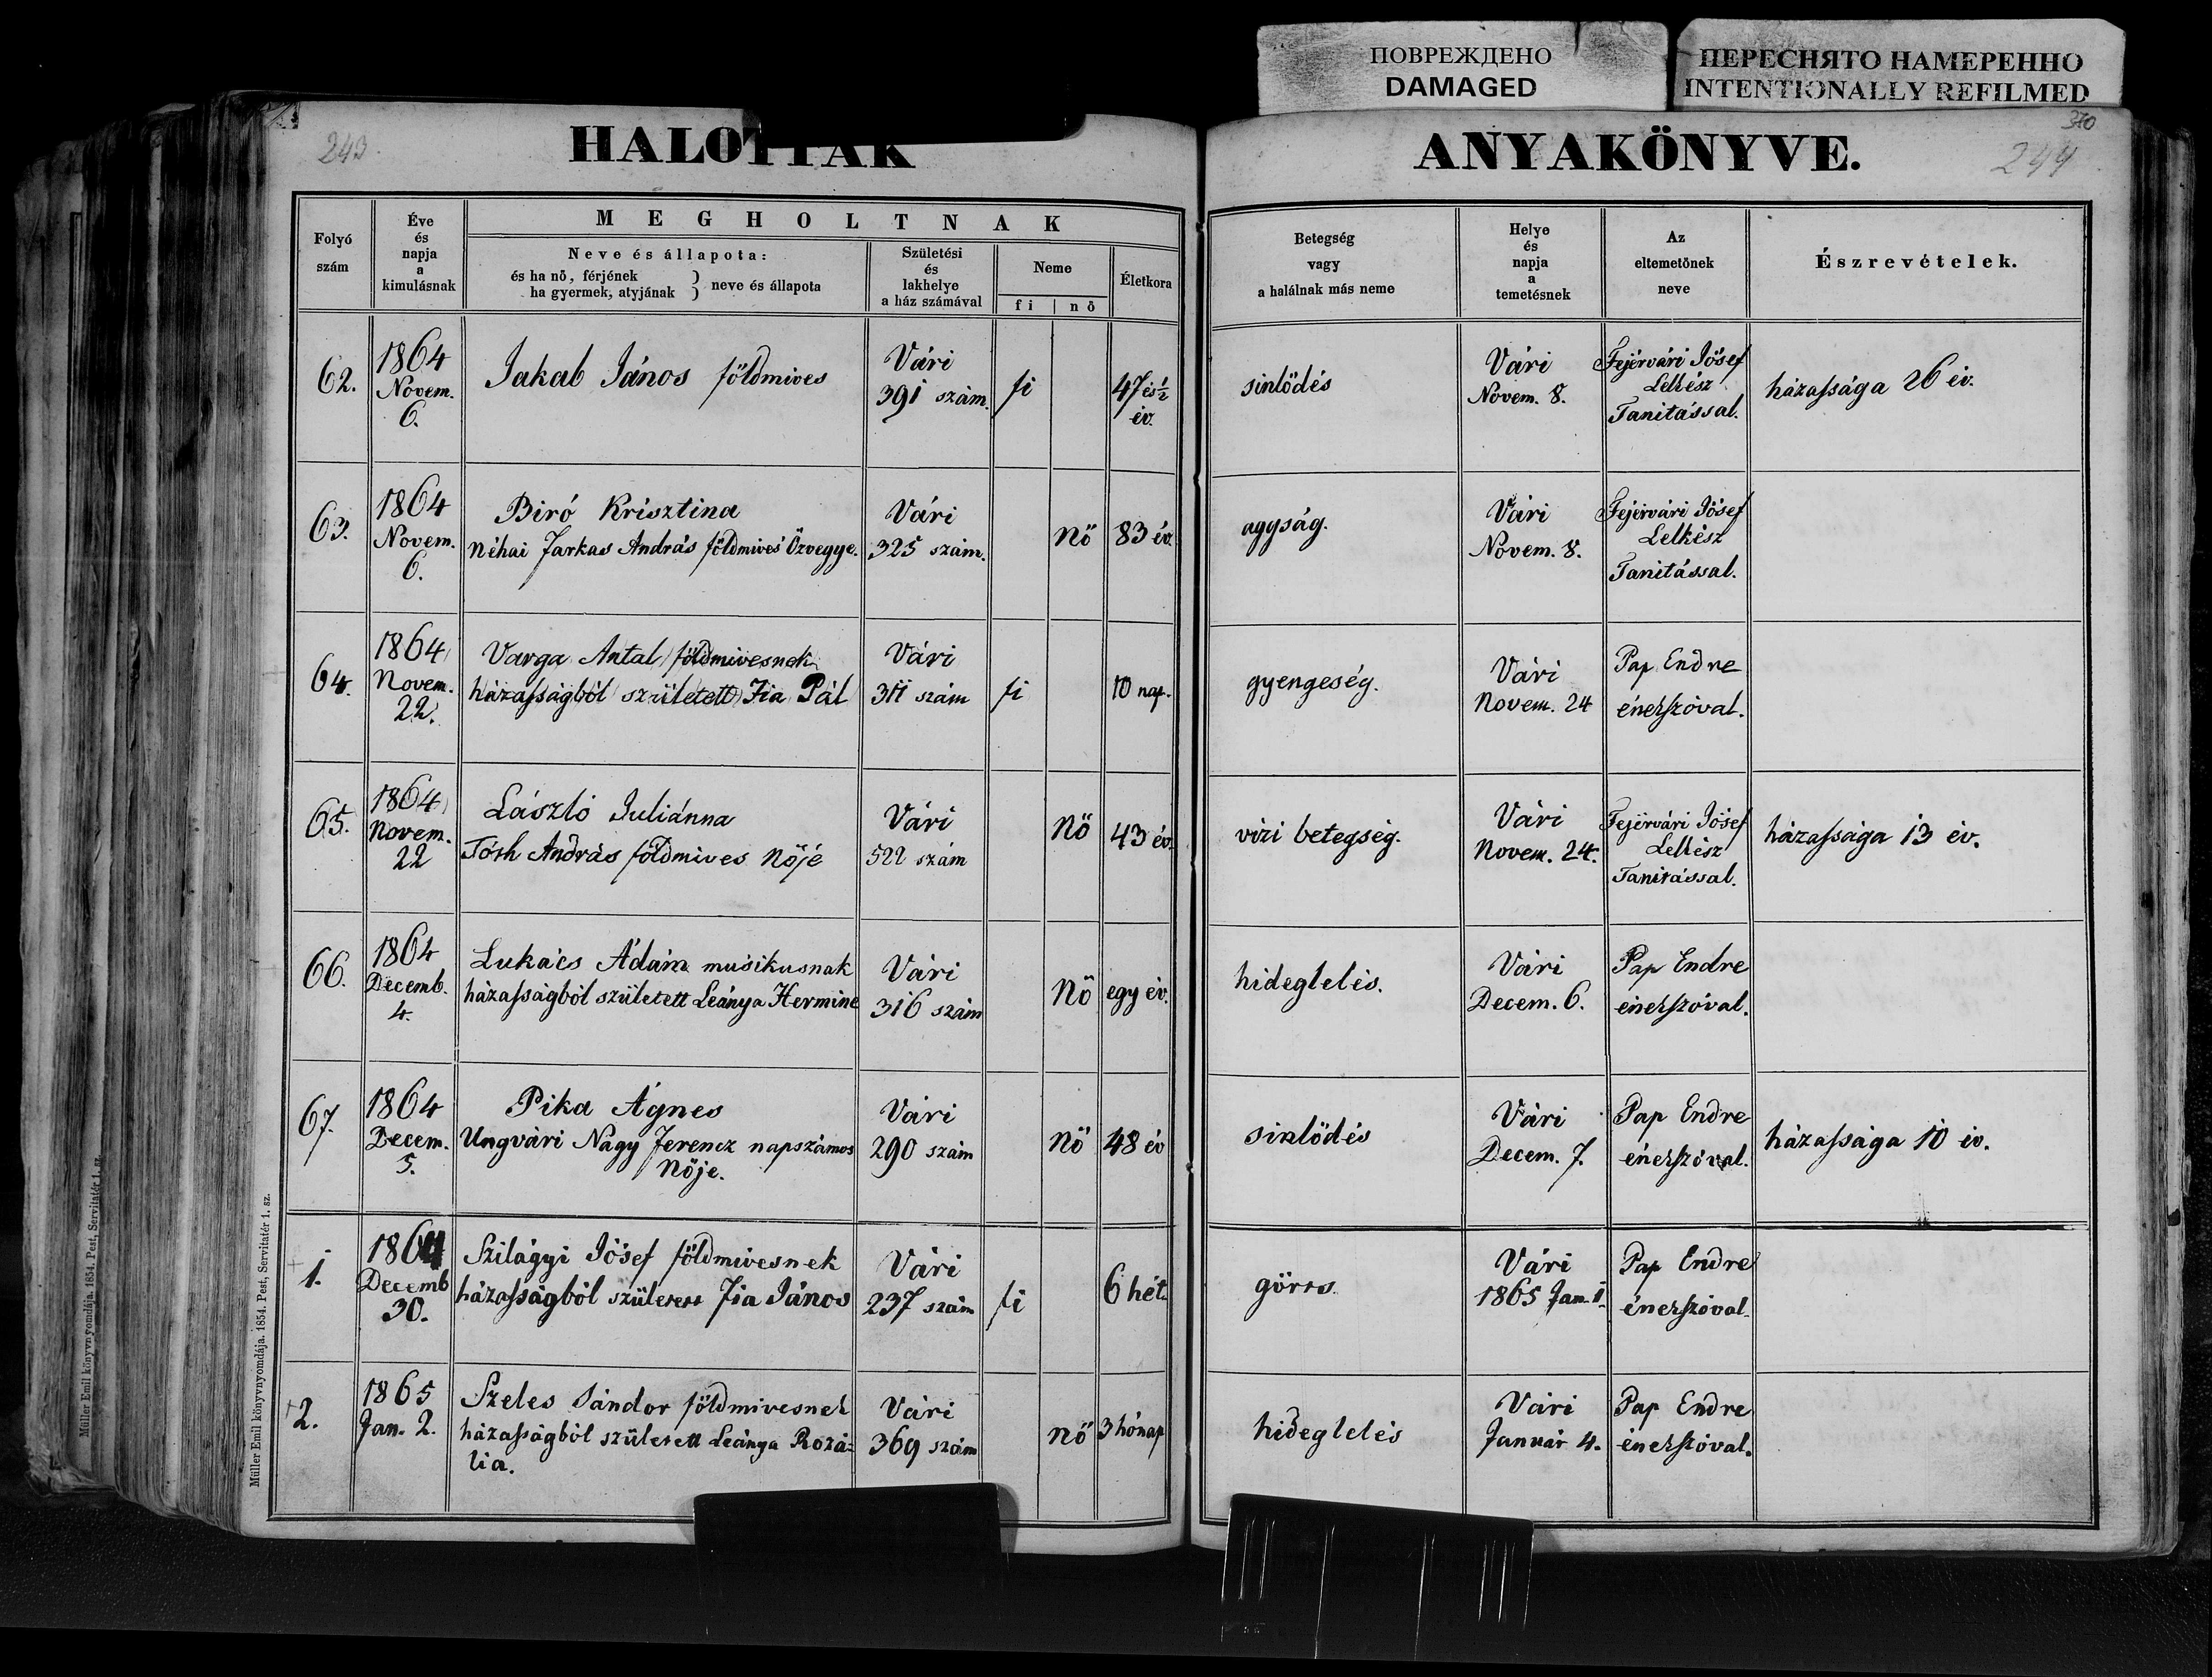 ПОВРЕЖДЕНО
DAMAGED
ПЕРЕСНЯТО НАМЕРЕННО
INTENTIONALLY REFILMED
243.
370
244
HALOTTAK
ANYAKÖNYVE.
Folyó
szám
Éve
és
napja
a
kimulásnak
MEGHOLTNAK
Neve és állapota:
és ha nő, férjének
ha gyermek, atyjának
neve és állapota
Születési
és
lakhelye
a ház számával
Neme
fi
nő
Életkora
Betegség
vagy
a halálnak más neme
Helye
és
napja
a
temetésnek
Az
eltemetőnek
neve
Észrevételek.
62.
1864
Novem.
6.
Jakab János földmives
Vári
391 szám.
fi
47 és 1/2
év.
sinlődés
Vári
Novem. 8.
Fejérvári Jósef
Lelkész
Tanitással.
házassága 26 év.
63.
1864
Novem.
6.
Biró Krisztina
néhai Farkas András földmives Özvegye.
Vári
325 szám.
Nő
83 év.
agyság.
Vári
Novem. 8.
Fejérvári Jósef
Lelkész
Tanitással.
64.
1864
Novem.
22.
Varga Antal földmivesnek
házasságból született Fia Pál
Vári
311 szám
fi
10 nap.
gyengeség.
Vári
Novem. 24
Pap Endre
énekszóval.
65.
1864
Novem.
22
László Juliánna
Tóth András földmives Nőjé
Vári
522 szám
Nő
43 év.
vizi betegség.
Vári
Novem. 24.
Fejérvári Jósef
Lelkész
Tanitással.
házassága 13 év.
66.
1864
Decemb.
4.
Lukács Ádám musikusnak
házasságból született Leánya Hermine
Vári
316 szám
Nő
egy év.
hideglelés.
Vári
Decem. 6.
Pap Endre
énekszóval.
67.
1864
Decem.
5.
Pika Ágnes
Ungvári Nagy Ferencz napszámos
Nője.
Vári
290 szám
Nő
48 év
sinlődés
Vári
Decem. 7.
Pap Endre
énekszóval.
házassága 10 év.
1.
1864
Decemb
30.
Szilágyi Jósef földmivesnek
házasságból született Fia János
Vári
237 szám
fi
6 hét.
görts.
Vári
1865 Jan. 1.
Pap Endre
énekszóval.
2.
1865
Jan. 2.
Szeles Sándor földmivesnek
házasságból született Leánya Rozá=
lia.
Vári
369 szám
nő
3 hónap
hideglelés
Vári
Január 4.
Pap Endre
énekszóval.
Müller Emil könyvnyomdája. 1854. Pest, Servitatér 1. sz.
Müller Emil könyvnyomdája. 1854. Pest, Servitatér 1. sz.